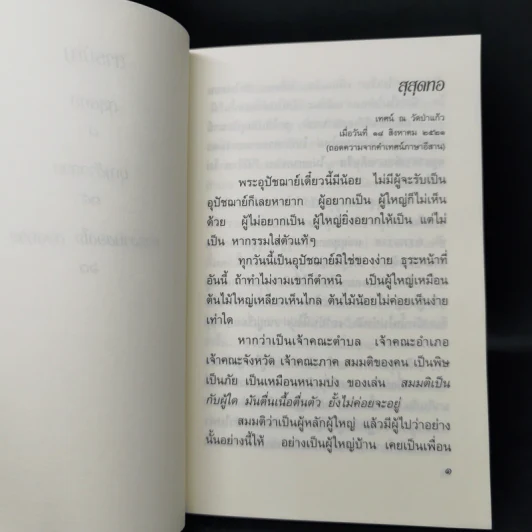 สุสุดทอ
เทศน์ ณ วัดป่าแก้ว
เมื่อวันที่ ๑๘ สิงหาคม ๒๕๒๑
(ถอดความจากคำเทศน์ภาษาอีสาน)
พระอุปัชฌาย์เดี๋ยวนี้มีน้อย ไม่มีผู้จะรับเป็น
อุปัชฌาย์ก็เลยหายาก ผู้อยากเป็น ผู้ใหญ่ก็ไม่เห็น
ด้วย ผู้ไม่อยากเป็น ผู้ใหญ่ยิ่งอยากให้เป็น แต่ไม่
เป็น หากรรมใส่ตัวแท้ๆ
ทุกวันนี้เป็นอุปัชฌาย์มิใช่ของง่าย ธุระหน้าที่
อันนี้ ถ้าทำไม่งามเขาก็ตำหนิ เป็นผู้ใหญ่เหมือน
ต้นไม้ใหญ่เหลียวเห็นไกล ต้นไม้น้อยไม่ค่อยเห็นง่าย
เท่าใด
หากว่าเป็นเจ้าคณะตำบล เจ้าคณะอำเภอ
เจ้าคณะจังหวัด เจ้าคณะภาค สมมติของคน เป็นพิษ
เป็นภัย เป็นเหมือนหนามบ่ง ของเล่น สมมติเป็น
กับผู้ใด มันตื่นเนื้อตื่นตัว ยั้งไม่ค่อยจะอยู่
สมมติว่าเป็นผู้หลักผู้ใหญ่ แล้วมีผู้ไปว่าอย่าง
นั้นอย่างนี้ให้ อย่างเป็นผู้ใหญ่บ้าน เคยเป็นเพื่อน
๑